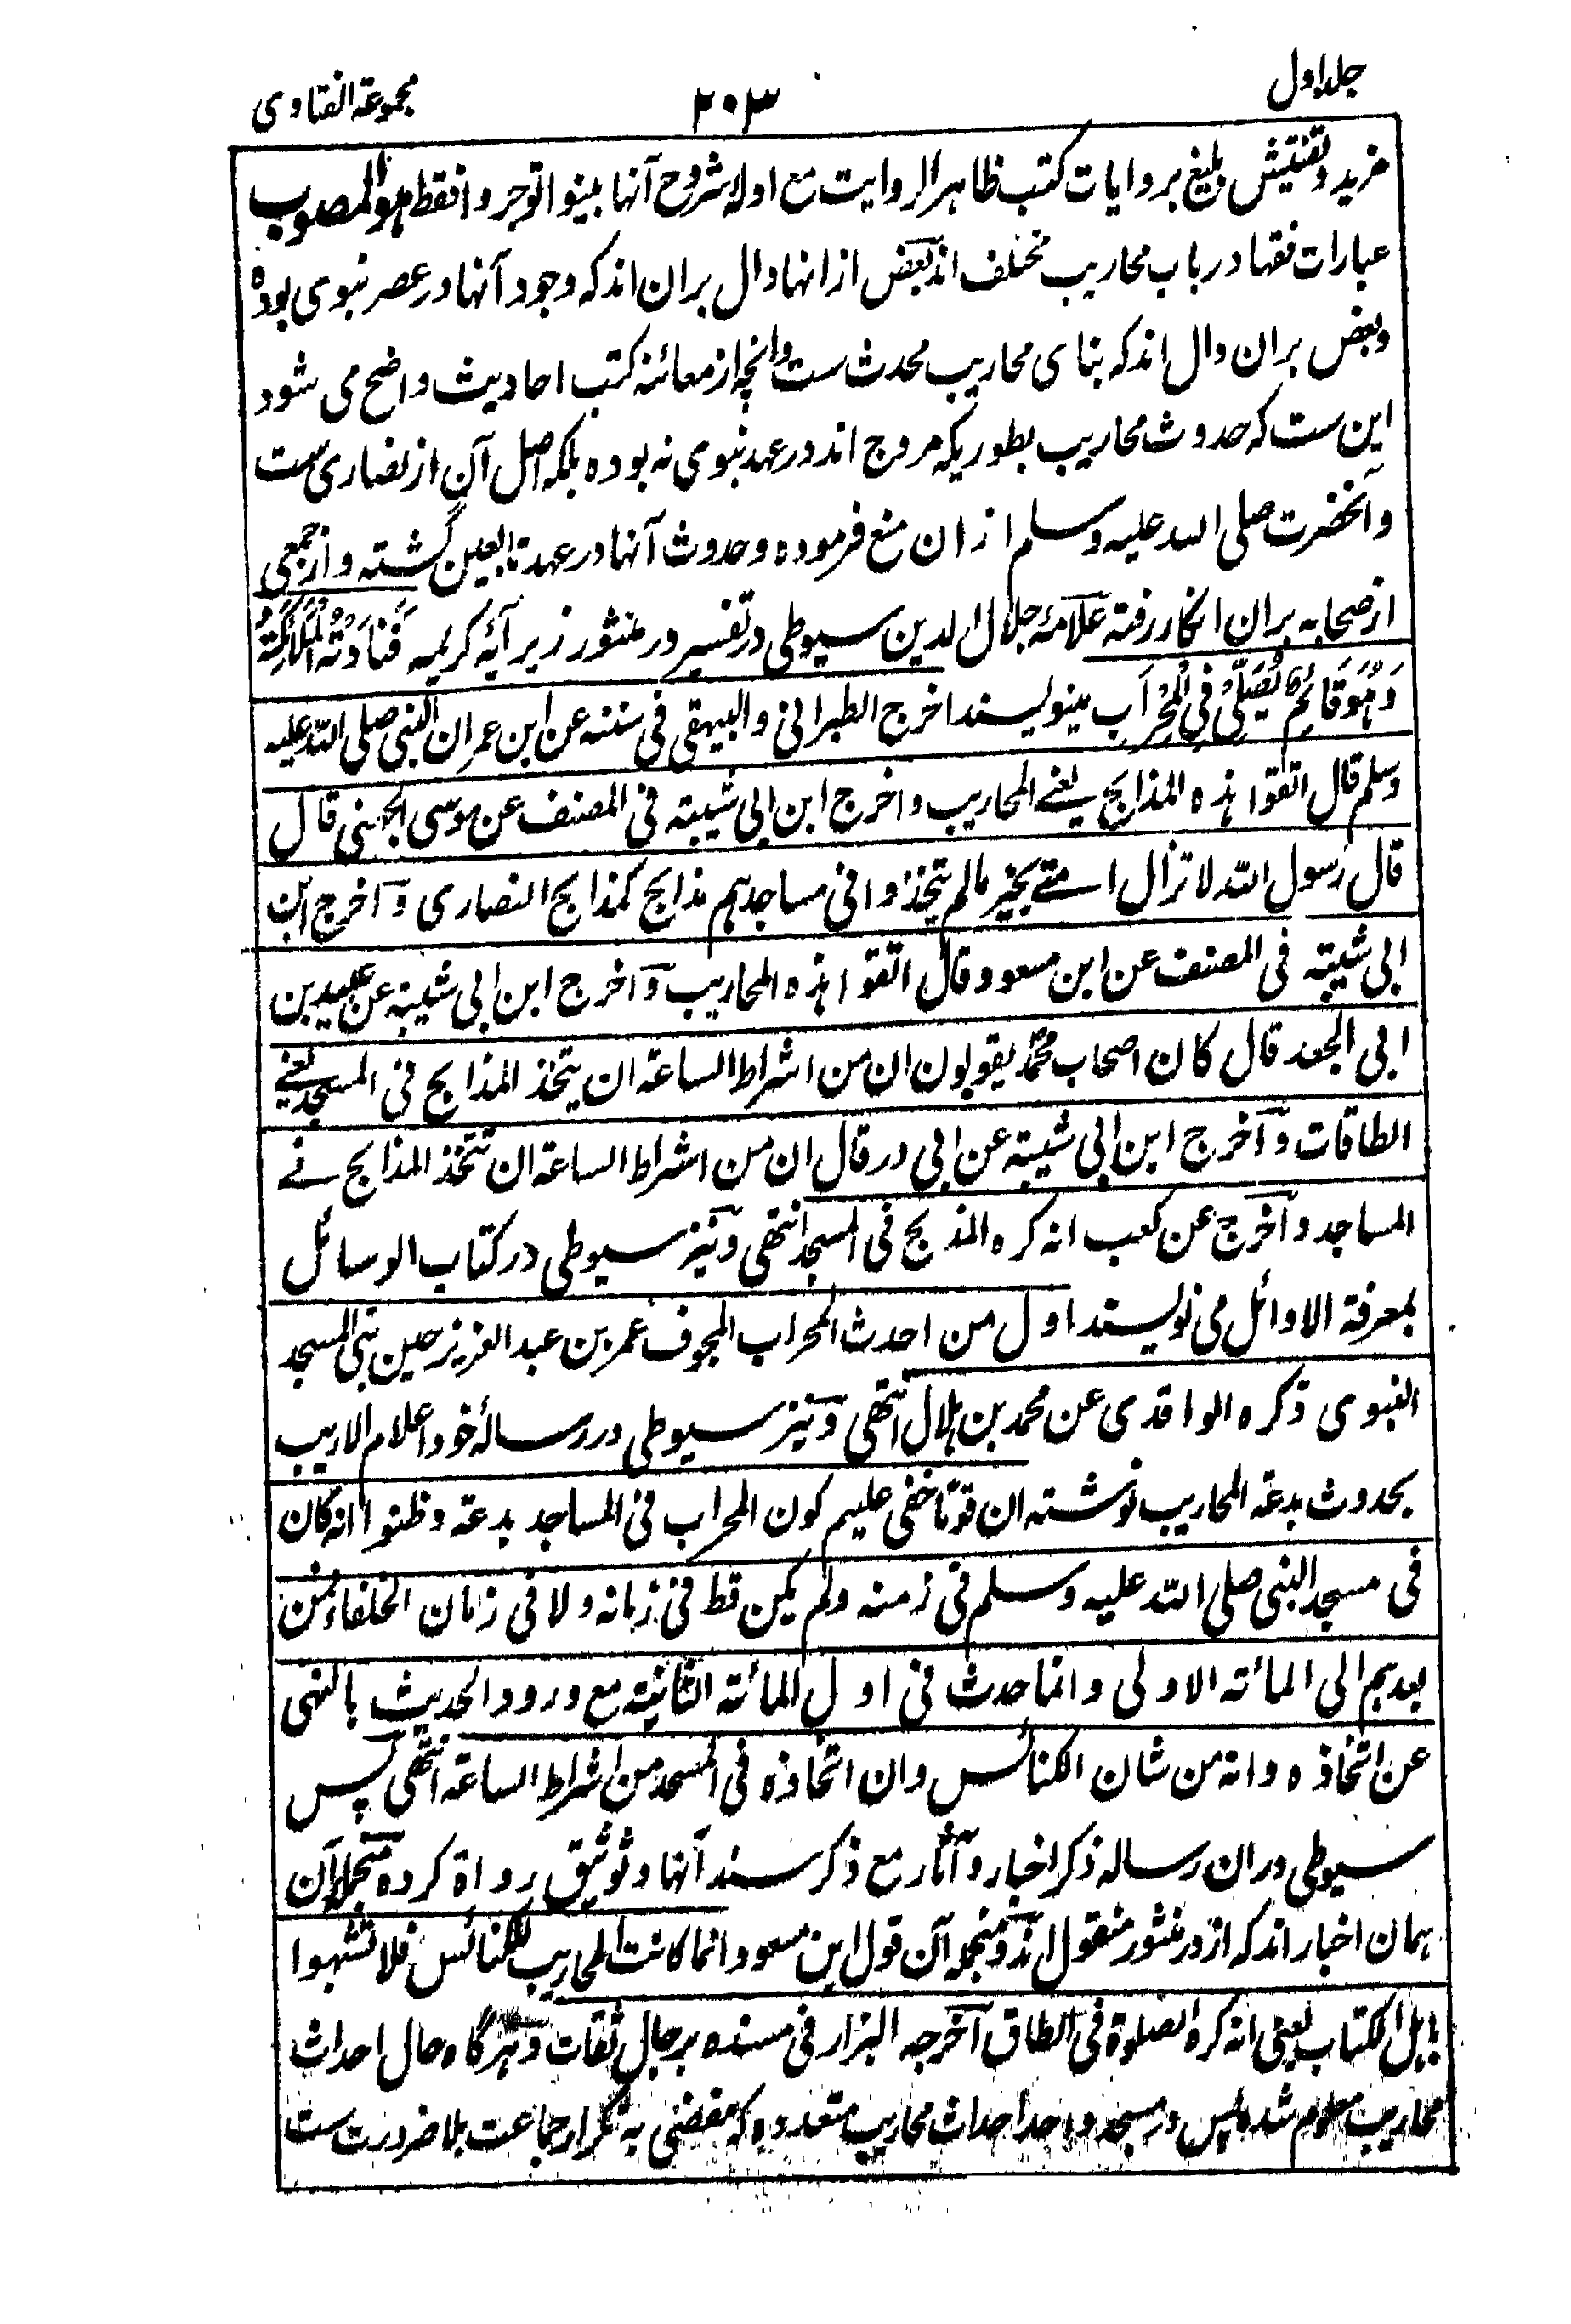 جلد اول
۲۰۳
مجموعۃ الفتاوی
مزید و تفتیش بلیغ بروایات کتب ظاہر الروایت مع اولہ شروح آنہا بینوا توجروا فقط ہو المصوب
عبارات فقہا در باب محاریب مختلف اند بعض از انہا دال بران اند کہ وجود آنہا در عصر نبوی بودہ
و بعض بران دال اند کہ بنای محاریب محدث ست و انچہ از معائنہ کتب احادیث واضح می شود
این ست کہ حدوث محاریب بطوریکہ مروج اند در عہد نبوی نہ بودہ بلکہ اصل آن از نصاری ست
و آنحضرت صلی اللہ علیہ وسلم ازان منع فرمودہ و حدوث آنہا در عہد تابعین گشتہ و از جمعی
از صحابہ بران انکار رفتہ علامۂ جلال الدین سیوطی در تفسیر در منثور زیر آیۂ کریمہ فَنَادَتْهُ الْمَلَائِكَةُ
وَهُوَ قَائِمٌ يُصَلِّي فِي الْمِحْرَابِ مینویسند اخرج الطبرانی والبیہقی فی سننہ عن ابن عمر ان النبی صلی اللہ علیہ
وسلم قال اتقوا ہذہ المذابح یعنے المحاریب واخرج ابن ابی شیبۃ فی المصنف عن موسی الجہنی قال
قال رسول اللہ لا تزال امتے بخیر مالم یتخذوا فی مساجدہم مذابح کمذابح النصاری واخرج ابن
ابی شیبۃ فی المصنف عن ابن مسعود قال اتقوا ہذہ المحاریب واخرج ابن ابی شیبۃ عن عبید بن
ابی الجعد قال کان اصحاب محمد یقولون ان من اشراط الساعۃ ان یتخذ المذابح فی المسجد یعنے
الطاقات واخرج ابن ابی شیبۃ عن ابی ذر قال ان من اشراط الساعۃ ان تتخذ المذابح فے
المساجد واخرج عن کعب انہ کرہ المذبح فی المسجد انتہی و نیز سیوطی در کتاب الوسائل
بمعرفۃ الاوائل می نویسند اول من احدث المحراب المجوف عمر بن عبد العزیز حین بنی المسجد
النبوی ذکرہ الواقدی عن محمد بن ہلال انتہی و نیز سیوطی در رسالۂ خود اعلام الاریب
بحدوث بدعۃ المحاریب نوشتہ ان قوما خفی علیہم کون المحراب فی المساجد بدعۃ وظنوا انہ کان
فی مسجد النبی صلی اللہ علیہ وسلم فی زمنہ ولم یکن قط فی زمانہ ولا فی زمان الخلفاء فمن
بعدہم الی المائۃ الاولی وانما حدث فی اول المائۃ الثانیۃ مع ورود الحدیث بالنہی
عن اتخاذہ وانہ من شان الکنائس وان اتخاذہ فی المسجد من اشراط الساعۃ انتہی پس
سیوطی دران رسالہ ذکر اخبار و آثار مع ذکر سند آنہا و توثیق رواۃ کردہ منجملہ آن
ہمان اخبار اند کہ از در منثور منقول اند و منجملہ آن قول ابن مسعود انما کانت المحاریب للکنائس فلا تشبہوا
باہل الکتاب یعنی انہ کرہ الصلوۃ فی الطاق اخرجہ البزار فی مسندہ برجال ثقات و ہرگاہ حال احداث
محاریب معلوم شد پس در مسجد واحد احداث محاریب متعددہ کہ مفضی بہ تکرار جماعت بلا ضرورت ست